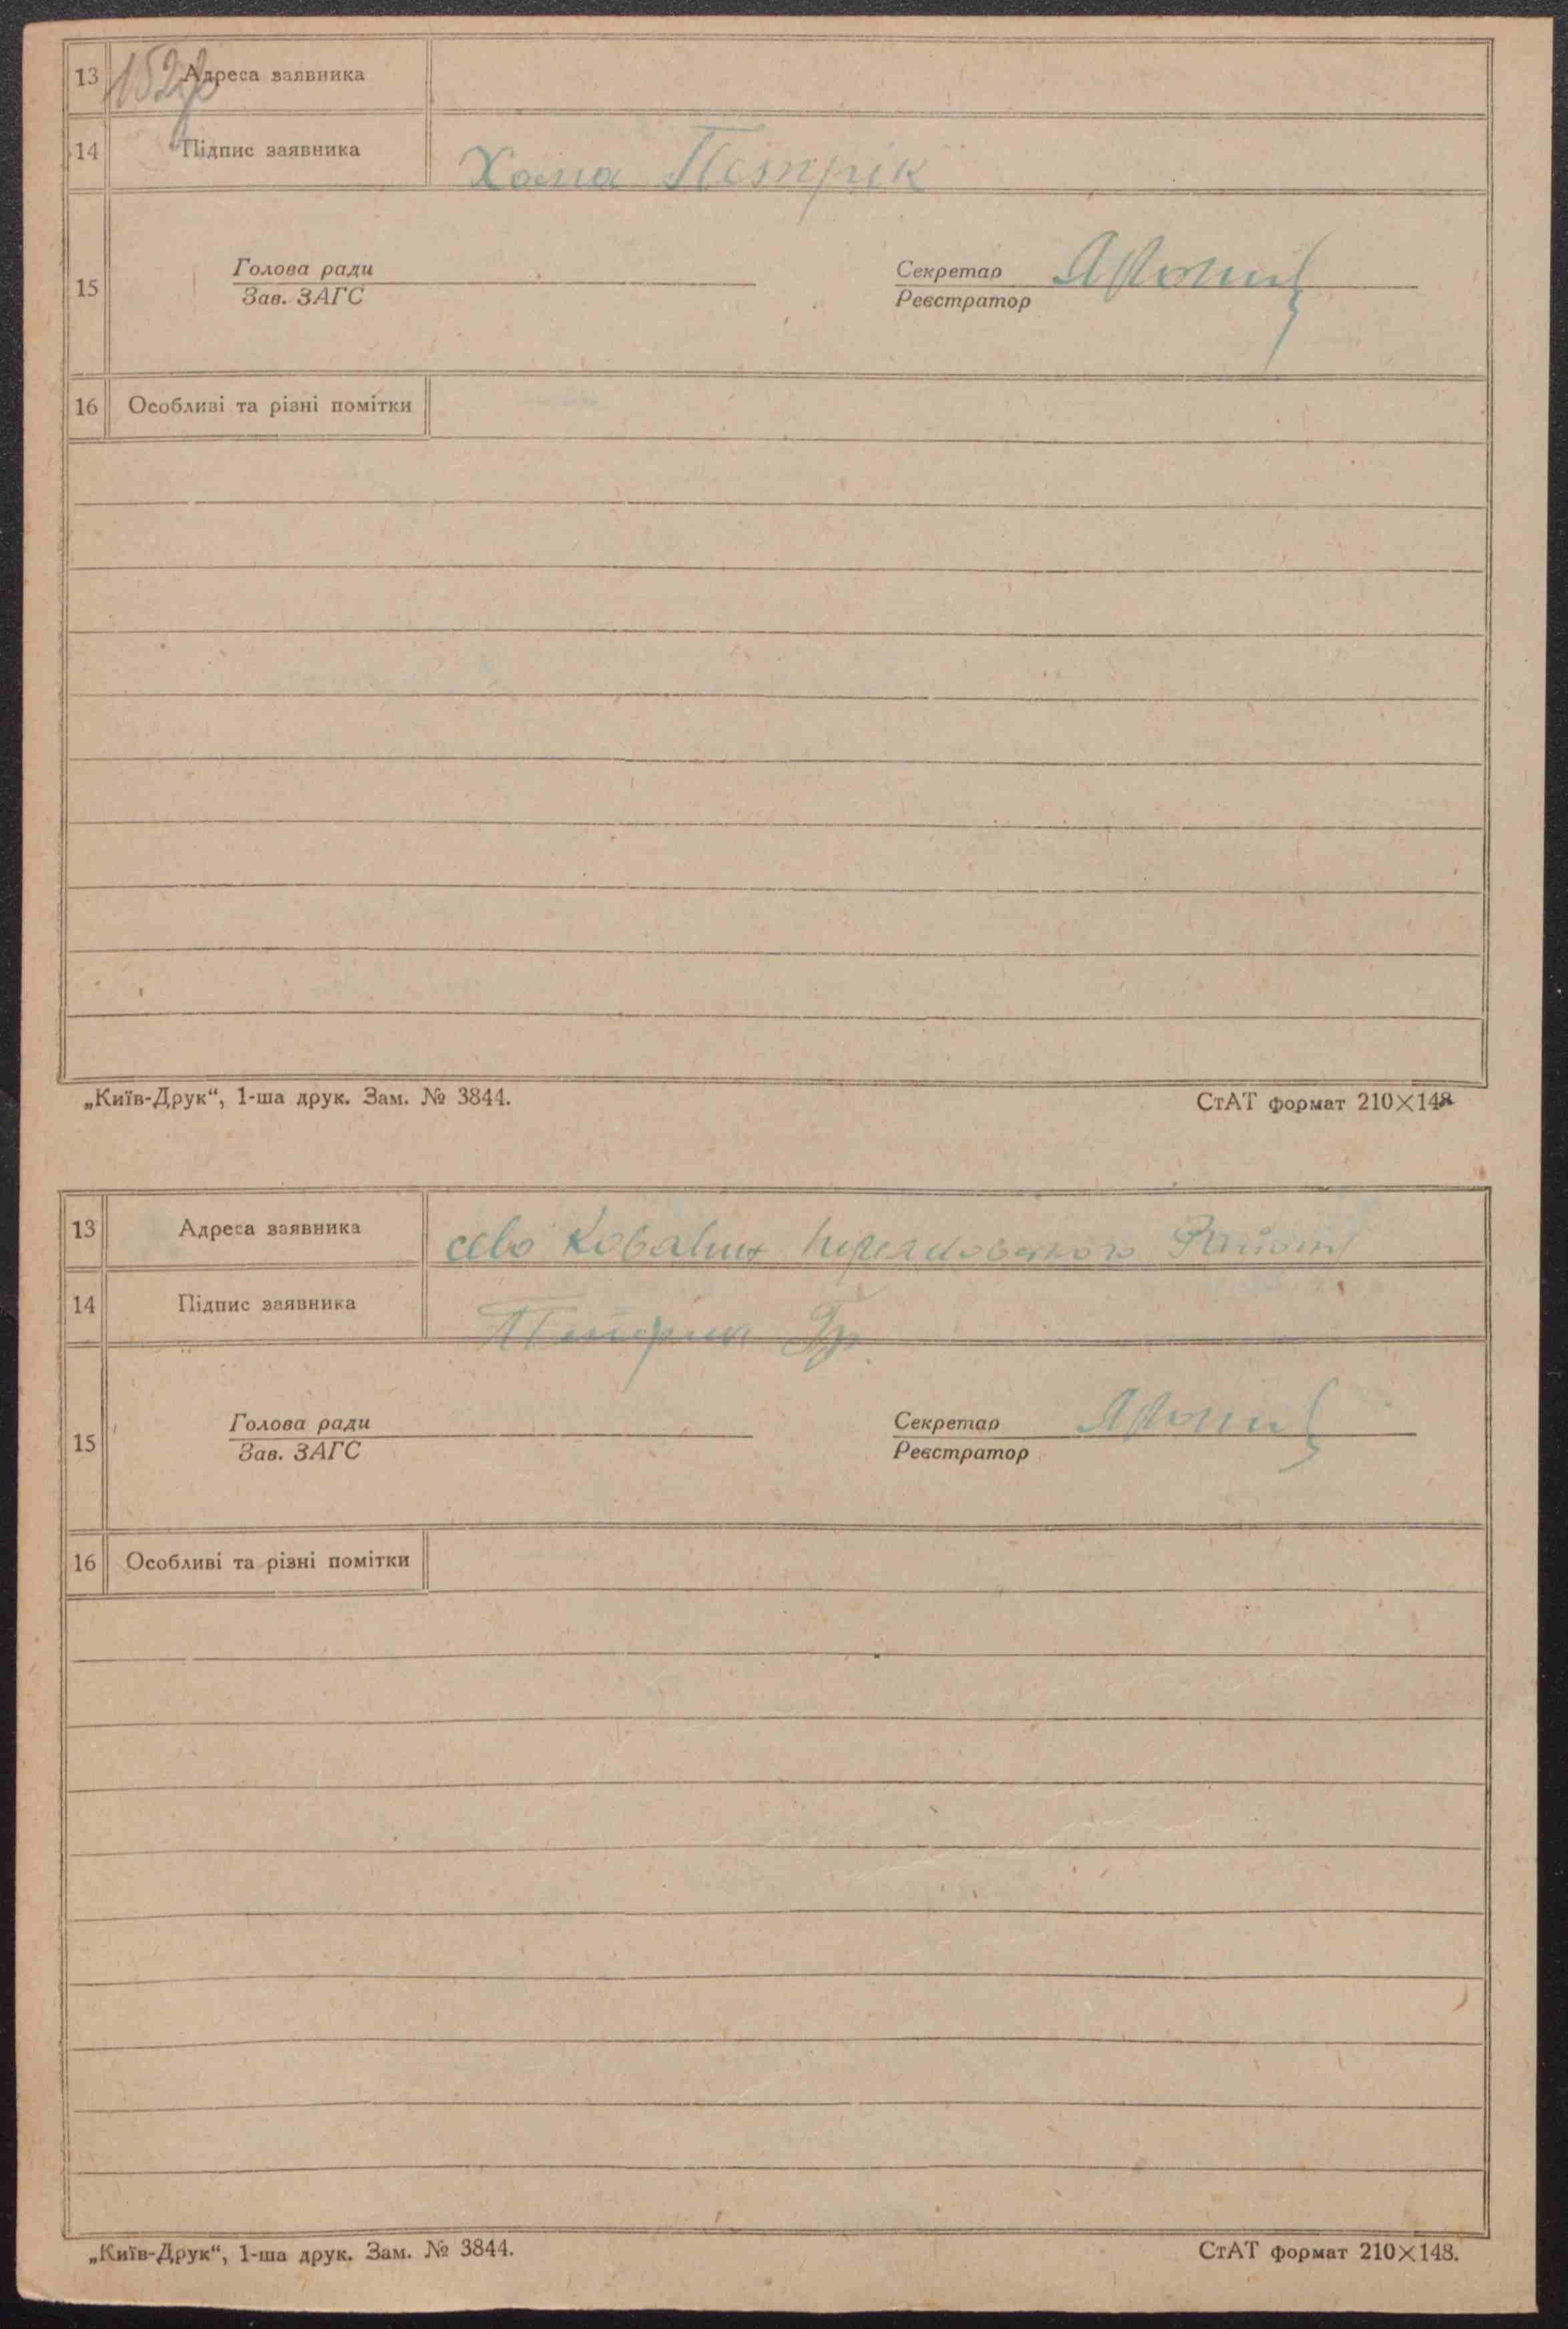 13 Адреса заявника
14 Підпис заявника Хома Петрік
15 Голова ради Секретар
Зав. ЗАГС Реєстратор
16 Особливі та різні помітки
„Київ-Друк“, 1-ша друк. Зам. № 3844. СтАТ формат 210×148
13 Адреса заявника село Ковалин
14 Підпис заявника
15 Голова ради Секретар
Зав. ЗАГС Реєстратор
16 Особливі та різні помітки
„Київ-Друк“, 1-ша друк. Зам. № 3844. СтАТ формат 210×148.